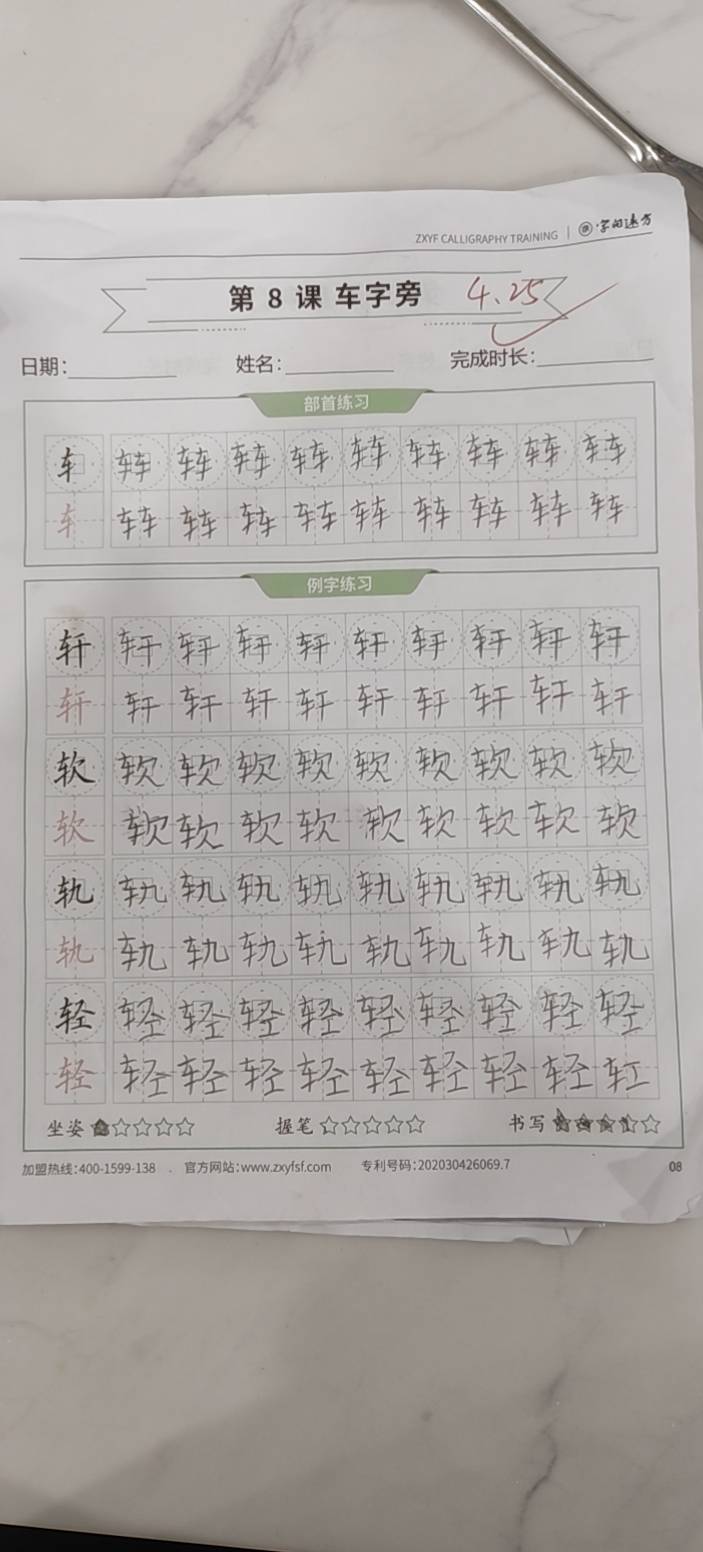 ZXYF CALLIGRAPHY TRAINING | 字由速方
第 8 课 车字旁 4.25
日期: 姓名: 完成时长:
部首练习
车 车车 车车 车车 车车 车车 车车 车车 车车 车车
车 车车 车车 车车 车车 车车 车车 车车 车车 车车
例字练习
轩 轩 轩 轩 轩 轩 轩 轩 轩 轩
轩 轩 轩 轩 轩 轩 轩 轩 轩 轩
软 软 软 软 软 软 软 软 软 软
软 软 软 软 软 软 软 软 软 软
轨 轨 轨 轨 轨 轨 轨 轨 轨 轨
轨 轨 轨 轨 轨 轨 轨 轨 轨 轨
轻 轻 轻 轻 轻 轻 轻 轻 轻 轻
轻 轻 轻 轻 轻 轻 轻 轻 轻 轻
坐姿 ★☆☆☆☆ 握笔 ☆☆☆☆☆ 书写 ★★★★☆
加盟热线:400-1599-138 . 官方网站:www.zxyfsf.com 专利号码:202030426069.7 08